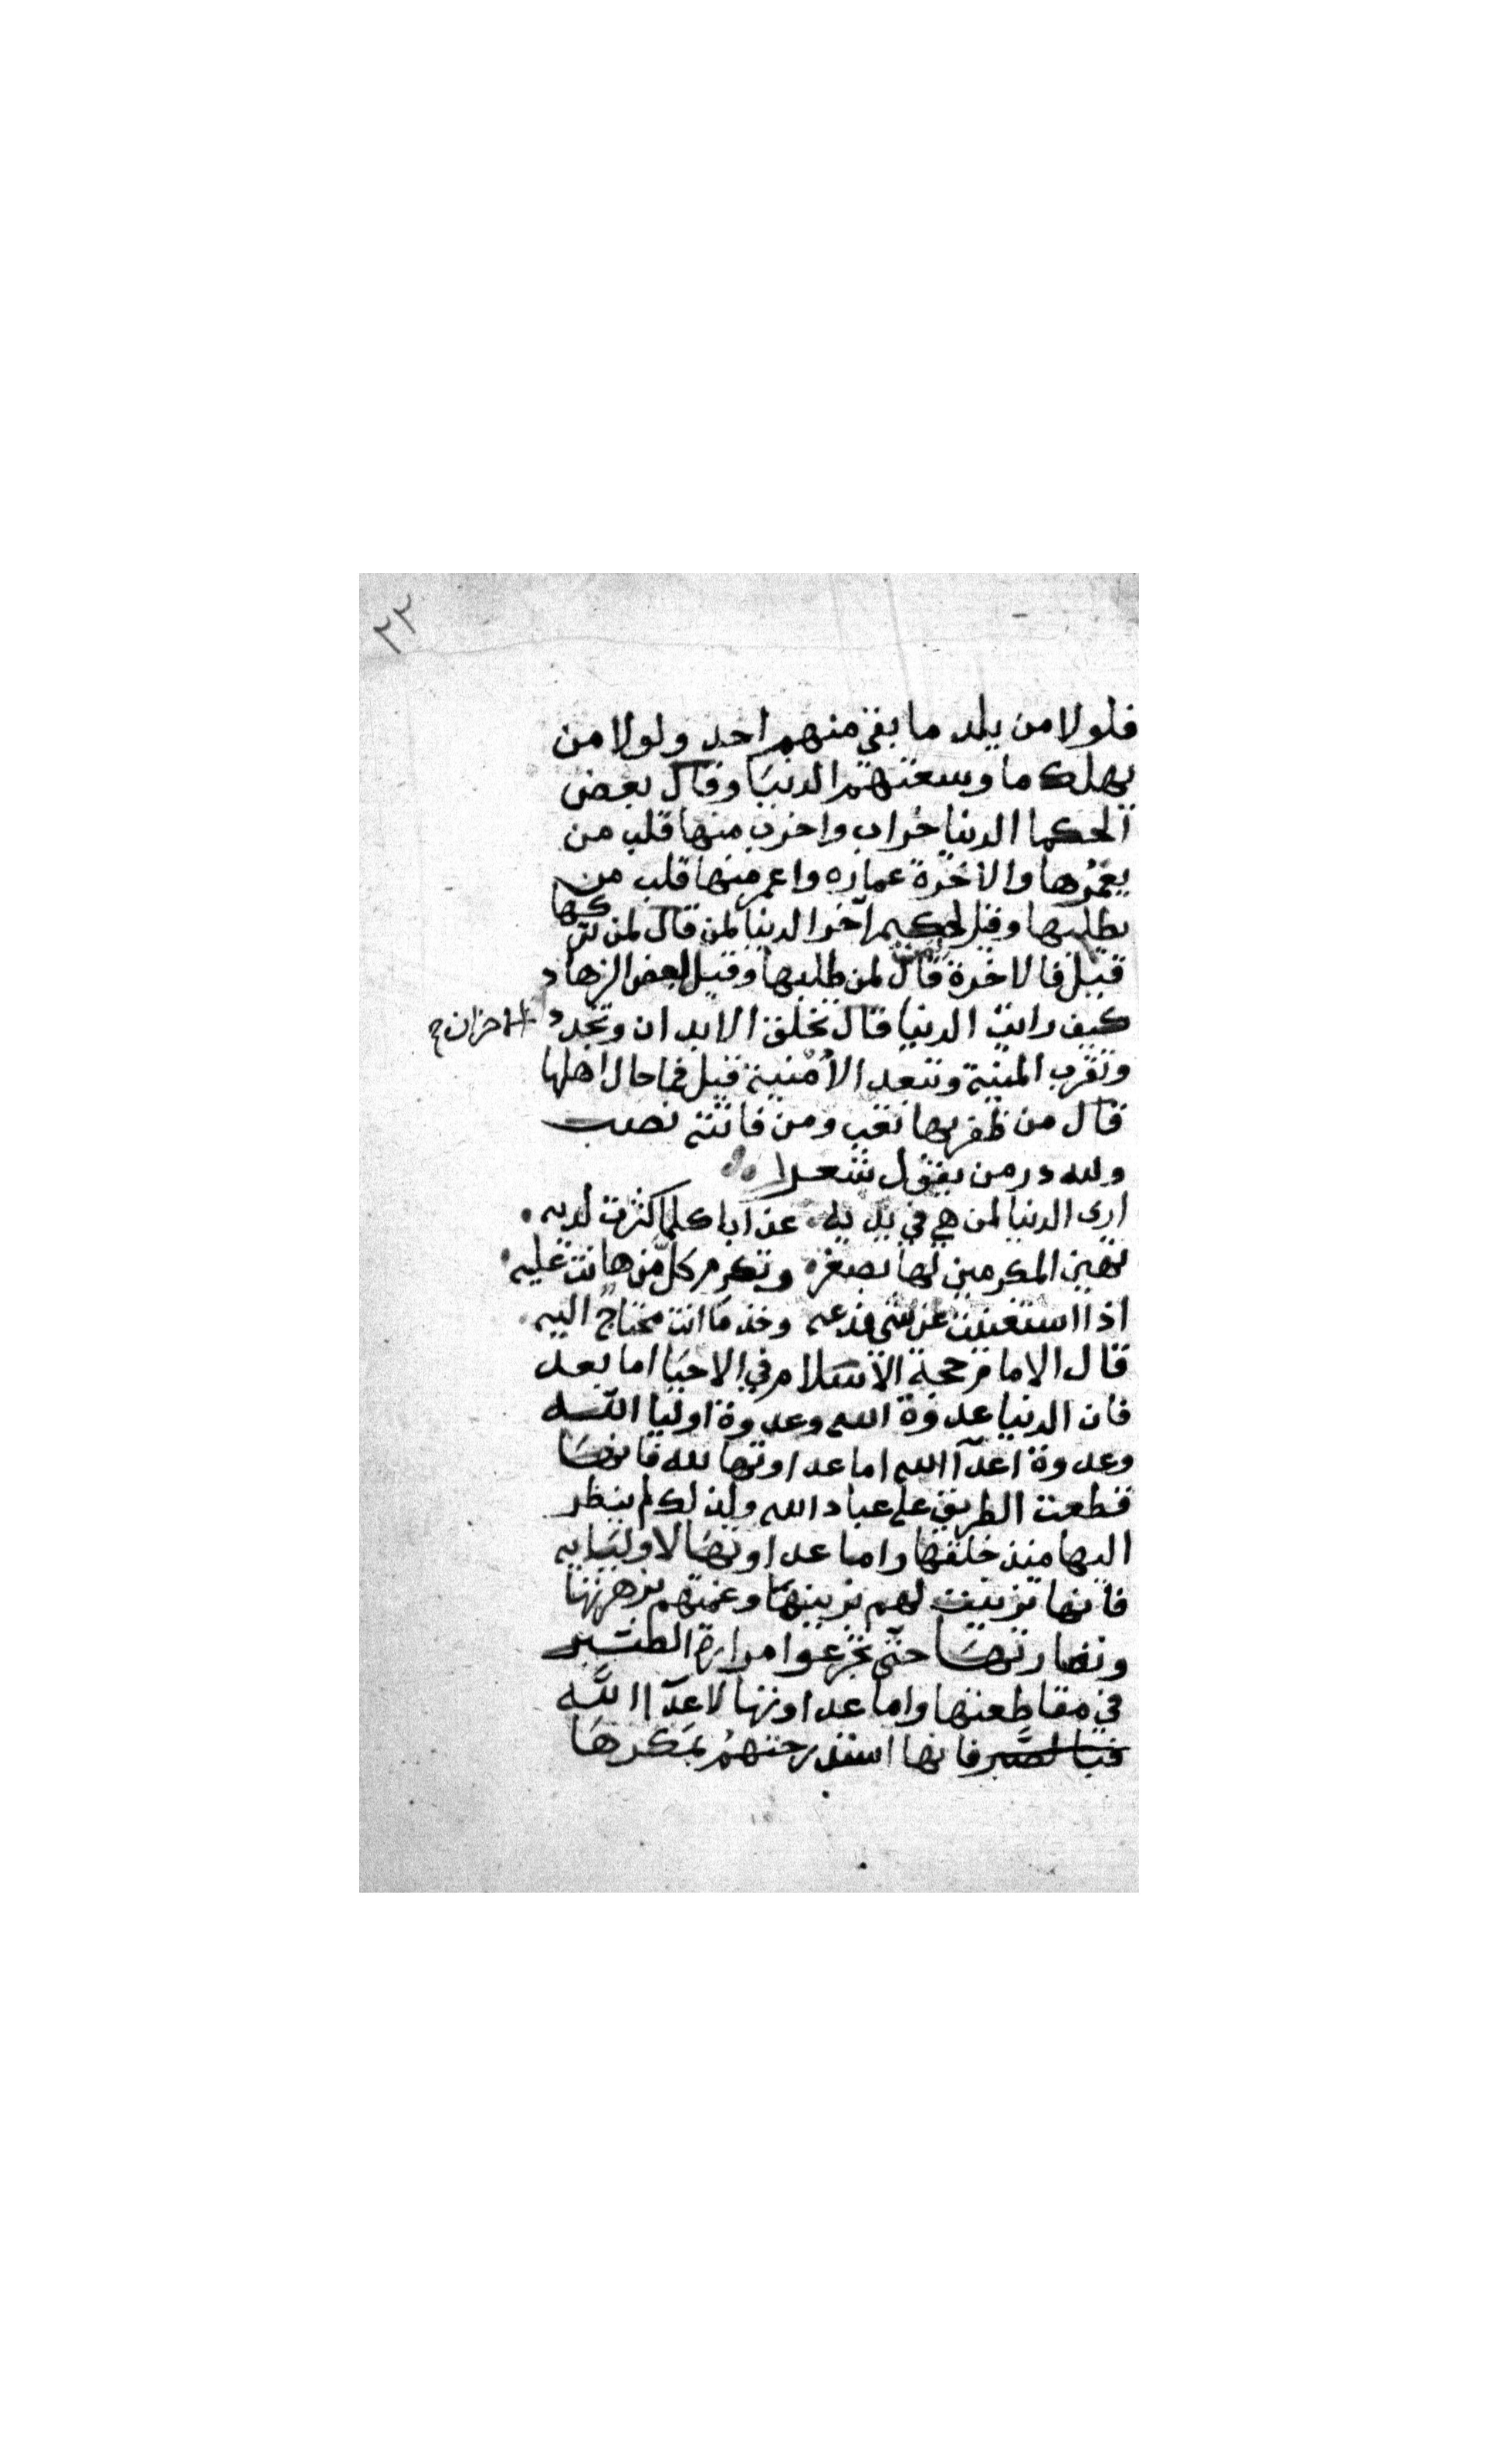 ٢٢
فلولا من يلد ما بقي منهم احد ولولا من
يهلك ما وسعتهم الدنيَا وقال بعض
الحكما الدنيا خراب واخرب منها قلب من
يعمُرها والاخرة عماره واعمر منها قلب من
يطلبها وقيل لحكيم آخر الدنيا لمن قال لمن تركها
قيل فالاخرة قال لمن طلبها وقيل لبعض الزهاد
كيف رايت الدنيا قال تخلق الابدان وتجدد الاحزان
وتقرب المنية وتبعد الأمْنية قيل فما حال اهلها
قال من ظفر بها تعب ومن فاتته نصب
ولله در من يقول شعرا
ارى الدنيا لمن هي في يديه عذابا كلما كثرت لديه
تهين المكرمين لها بصغر وتكرم كلّ من هانت عليه
اذا استغنيت عن شي فدعه وخذ ما انت محتاج اليه
قال الامام حجة الاسَلام في الاحيَا اما بعد
فان الدنيا عدوة الله وعدوة اوليا اللّه
وعدوة اعدآ الله اما عداوتها لله فانهَا
قطعت الطريق على عباد الله ولذلك لم ينظر
اليها منذ خلقها واما عداوتهَا لاوليَايه
فانها تزينت لهم بزينتهَا وعمتهم بزهرتها
ونضارتهَا حتّى تجرعوا مرارة الصَّبر
في مقاطعتها واما عداوتها لاعدآ اللَّه
فانها استدرجتهمُ بمَكرهَا